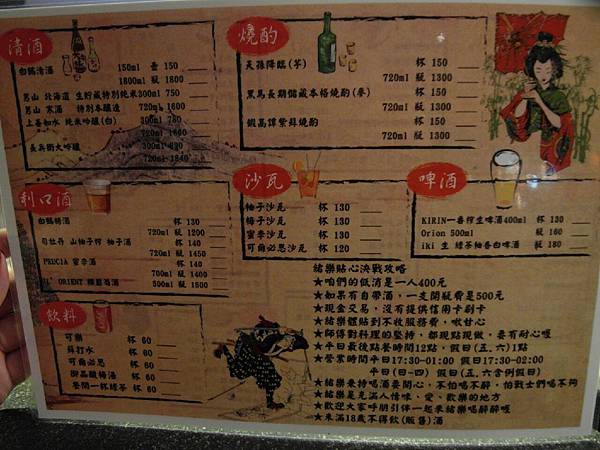 清酒
白鶴清酒 150ml 壺 150
1800ml 瓶 1800
男山 北海道 生貯藏特別純米 300ml 750
男山 寒酒 特別本釀造 720ml 1600
上善如水 純米吟釀(白) 300ml 780
720ml 1600
長兵衛大吟釀 300ml
720ml 1840
燒酌
天孫降臨(芋) 杯 150
720ml 瓶 1300
黑馬長期儲藏本格燒酌(麥) 杯 150
720ml 瓶 1300
鍛高譚紫蘇燒酌 杯 150
720ml 瓶 1300
利口酒
白鶴梅酒 杯 130
720ml 瓶 1200
司牡丹 山柚子搾 柚子酒 杯 140
720ml 瓶 1450
PRUCIA 蜜李酒 杯 140
700ml 瓶 1400
ORIENT 500ml 瓶 1800
沙瓦
柚子沙瓦 杯 130
梅子沙瓦 杯 130
蜜李沙瓦 杯 130
可爾必思沙瓦 杯 120
啤酒
KIRIN一番搾生啤酒400ml 杯 130
Orion 500ml 瓶 160
iki 生 綠茶柚香白啤酒 瓶 180
飲料
可樂 杯 60
蘇打水 杯 60
可爾必思 杯 60
御品酸梅湯 杯 60
餐間一杯綠茶 杯 60
緒樂貼心決戰攻略
★咱們的低消是一人400元
★如果有自帶酒,一支開瓶費是500元
★現金交易,沒有提供信用卡刷卡
★緒樂體貼到不收服務費,啾甘心
★師傅對料理的堅持,都現點現做,要有耐心喔
★平日最後點餐時間12點,假日(五,六)1點
★營業時間平日17:30-01:00 假日17:30-02:00
平日(日一四) 假日(五,六含例假日)
★緒樂來持喝酒要開心,不怕喝不醉,怕戰士們喝不夠
★緒樂是充滿人情味、愛、歡樂的地方
★歡迎大家呼朋引伴一起來緒樂喝醉醉喔
★未滿18歲不得飲(販售)酒